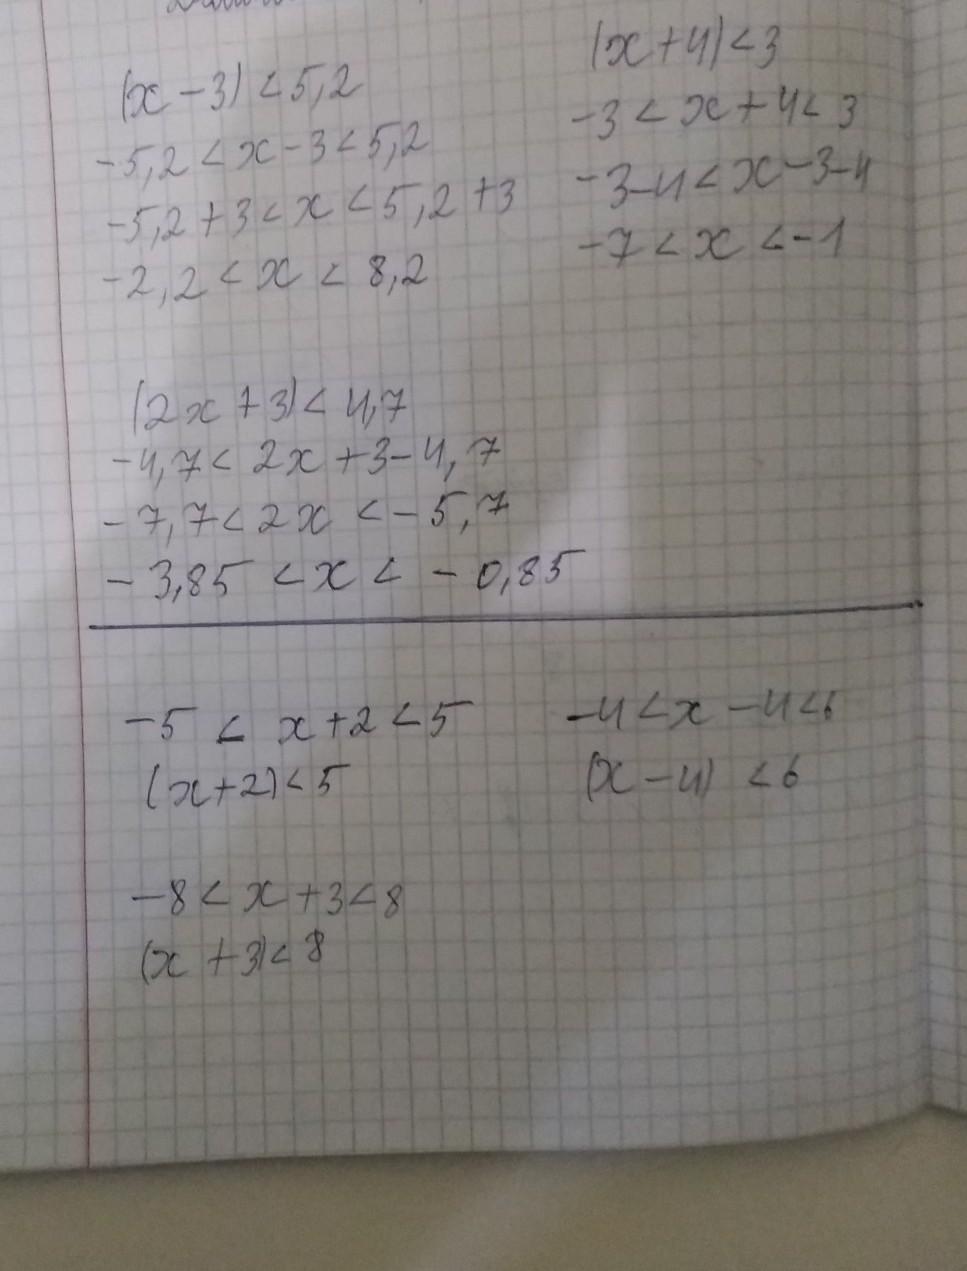 (x - 3) < 5,2
-5,2 < x - 3 < 5,2
-5,2 + 3 < x < 5,2 + 3
-2,2 < x < 8,2
(x + 4) < 3
-3 < x + 4 < 3
-3-4 < x - 3-4
-7 < x < -1
(2x + 3) < 4,7
-4,7 < 2x + 3 - 4,7
-7,7 < 2x < -5,7
-3,85 < x < -0,85
-5 < x + 2 < 5
(x+2) < 5
-4 < x - 4 < 6
(x - 4) < 6
-8 < x + 3 < 8
(x + 3) < 8